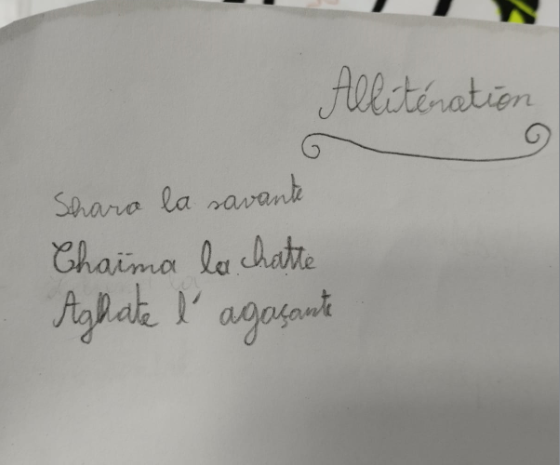 Allitération
Sharo la savante
Chaïma la chatte
Aghate l' agaçante